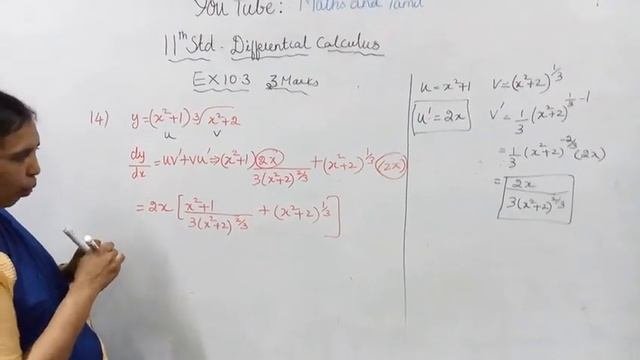 YouTube: Maths and Tamil
11th Std. Differential Calculus
EX 10.3 3 Marks
14) y=(x²+1) ∛(x²+2)
u v
dy/dx = uv'+vu' ⇒ (x²+1) 2x/3(x²+2)^2/3 + (x²+2)^1/3 (2x)
= 2x [ x²+1/3(x²+2)^2/3 + (x²+2)^1/3 ]
u=x²+1 v=(x²+2)^1/3
u'=2x v'=1/3 (x²+2)^1/3-1
=1/3 (x²+2)^-2/3 (2x)
= 2x/3(x²+2)^2/3